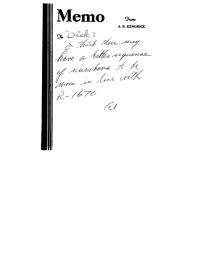 Memo
From
A. H. KENDRICK
To Dick:
I think this may
have a better sequence
of numbers to be
more in line with
R-1670.